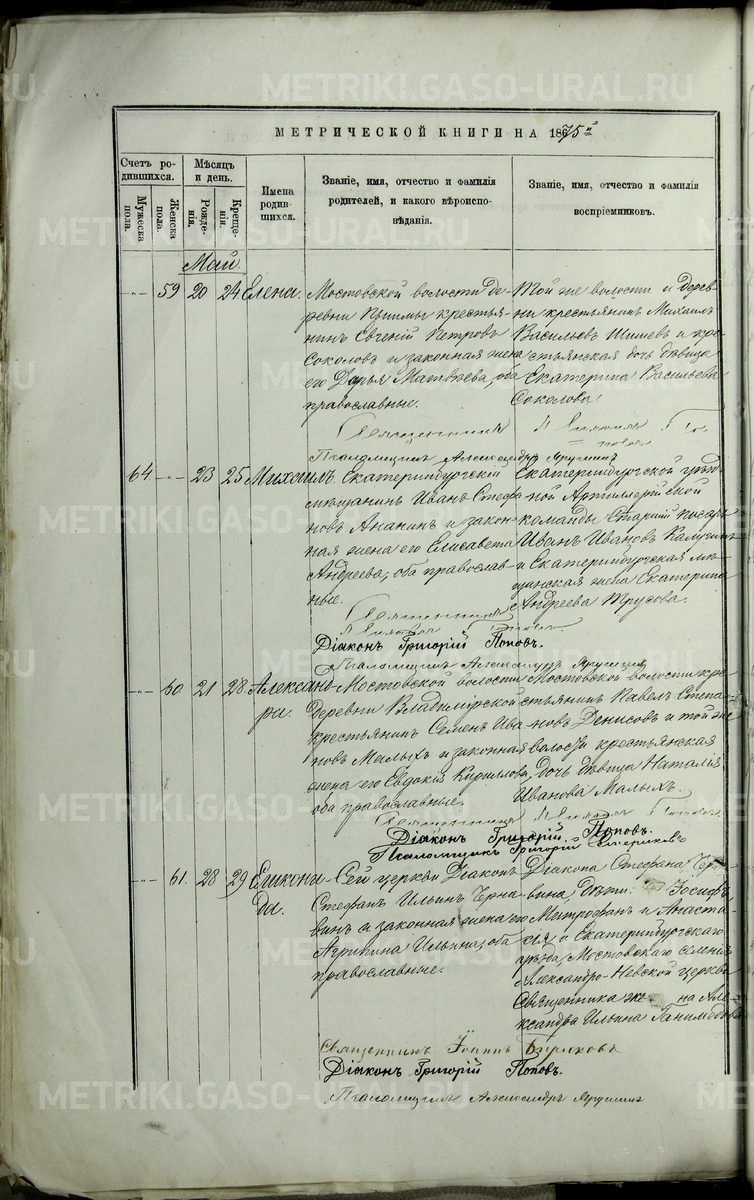 МЕТРИЧЕСКОЙ КНИГИ НА 1875й
Счетъ ро-
дившихся.
Мужеска
пола.
Женска
пола.
Мѣсяцъ
и день.
Рожде-
нія.
Креще-
нія.
Имена
родив-
шихся.
Званіе, имя, отчество и фамилія
родителей, и какого вѣроиспо-
вѣданія.
Званіе, имя, отчество и фамилія
воспріемниковъ.
Май.
59 20 24 Елена.
Мостовской волости де-
ревни крестья-
нинъ Евгеній Петровъ
Соколовъ и законная жена
его Дарья Матвѣева, оба
православные.
Той же волости и дерев-
ни крестьянинъ Михаилъ
Васильевъ и кре-
стьянская дочь дѣвица
Екатерина Васильева
Соколова.
Священникъ
Псаломщикъ Александръ
64 23 25 Михаилъ.
Екатеринбургскій
мѣщанинъ Иванъ Стефа-
новъ Ананинъ и закон-
ная жена его Елисавета
Андреева, оба православ-
ные.
Екатеринбургской уѣзд-
ной Артиллерійской
команды Старшій писарь
Иванъ Ивановъ
и Екатеринбургская мѣ-
щанская жена Екатерина
Андреева Трусова.
Священникъ
Попов
Діаконъ Григорій Поповъ.
Псаломщикъ Александръ
60 21 28 Александ-
ра.
Мостовской волости
деревни Владимирской
крестьянинъ Семенъ Ива-
новъ Малыхъ и законная
жена его Евдокія Кириллова,
оба православные.
Мостовской волости кре-
стьянинъ Павелъ Степа-
новъ Денисовъ и той же
волости крестьянская
дочь дѣвица Наталія
Иванова Малыхъ.
Священникъ Попов
Діаконъ Григорій Поповъ.
Псаломщикъ Григорій
61. 28 29 Епикони-
да.
Сей церкви Діаконъ
Стефанъ Ильинъ Черна-
винъ и законная жена его
Агрипина Ильина, оба
православные.
Діакона Стефана Чер-
навина, дѣти: Іосифъ,
Митрофанъ и Анаста-
сія; и Екатеринбургскаго
уѣзда, Мостовскаго селенія
Александро-Невской церкви
Священника же-на Але-
ксандра Ильина
Священникъ Іоаннъ Бирюковъ
Діаконъ Григорій Поповъ.
Псаломщикъ Александръ
METRIKI.GASO-URAL.RU
METRIKI.GASO-URAL.RU
METRIKI.GASO-URAL.RU
METRIKI.GASO-URAL.RU
METRIKI.GASO-URAL.RU
METRIKI.GASO-URAL.RU
METRIKI.GASO-URAL.RU
METRIKI.GASO-URAL.RU